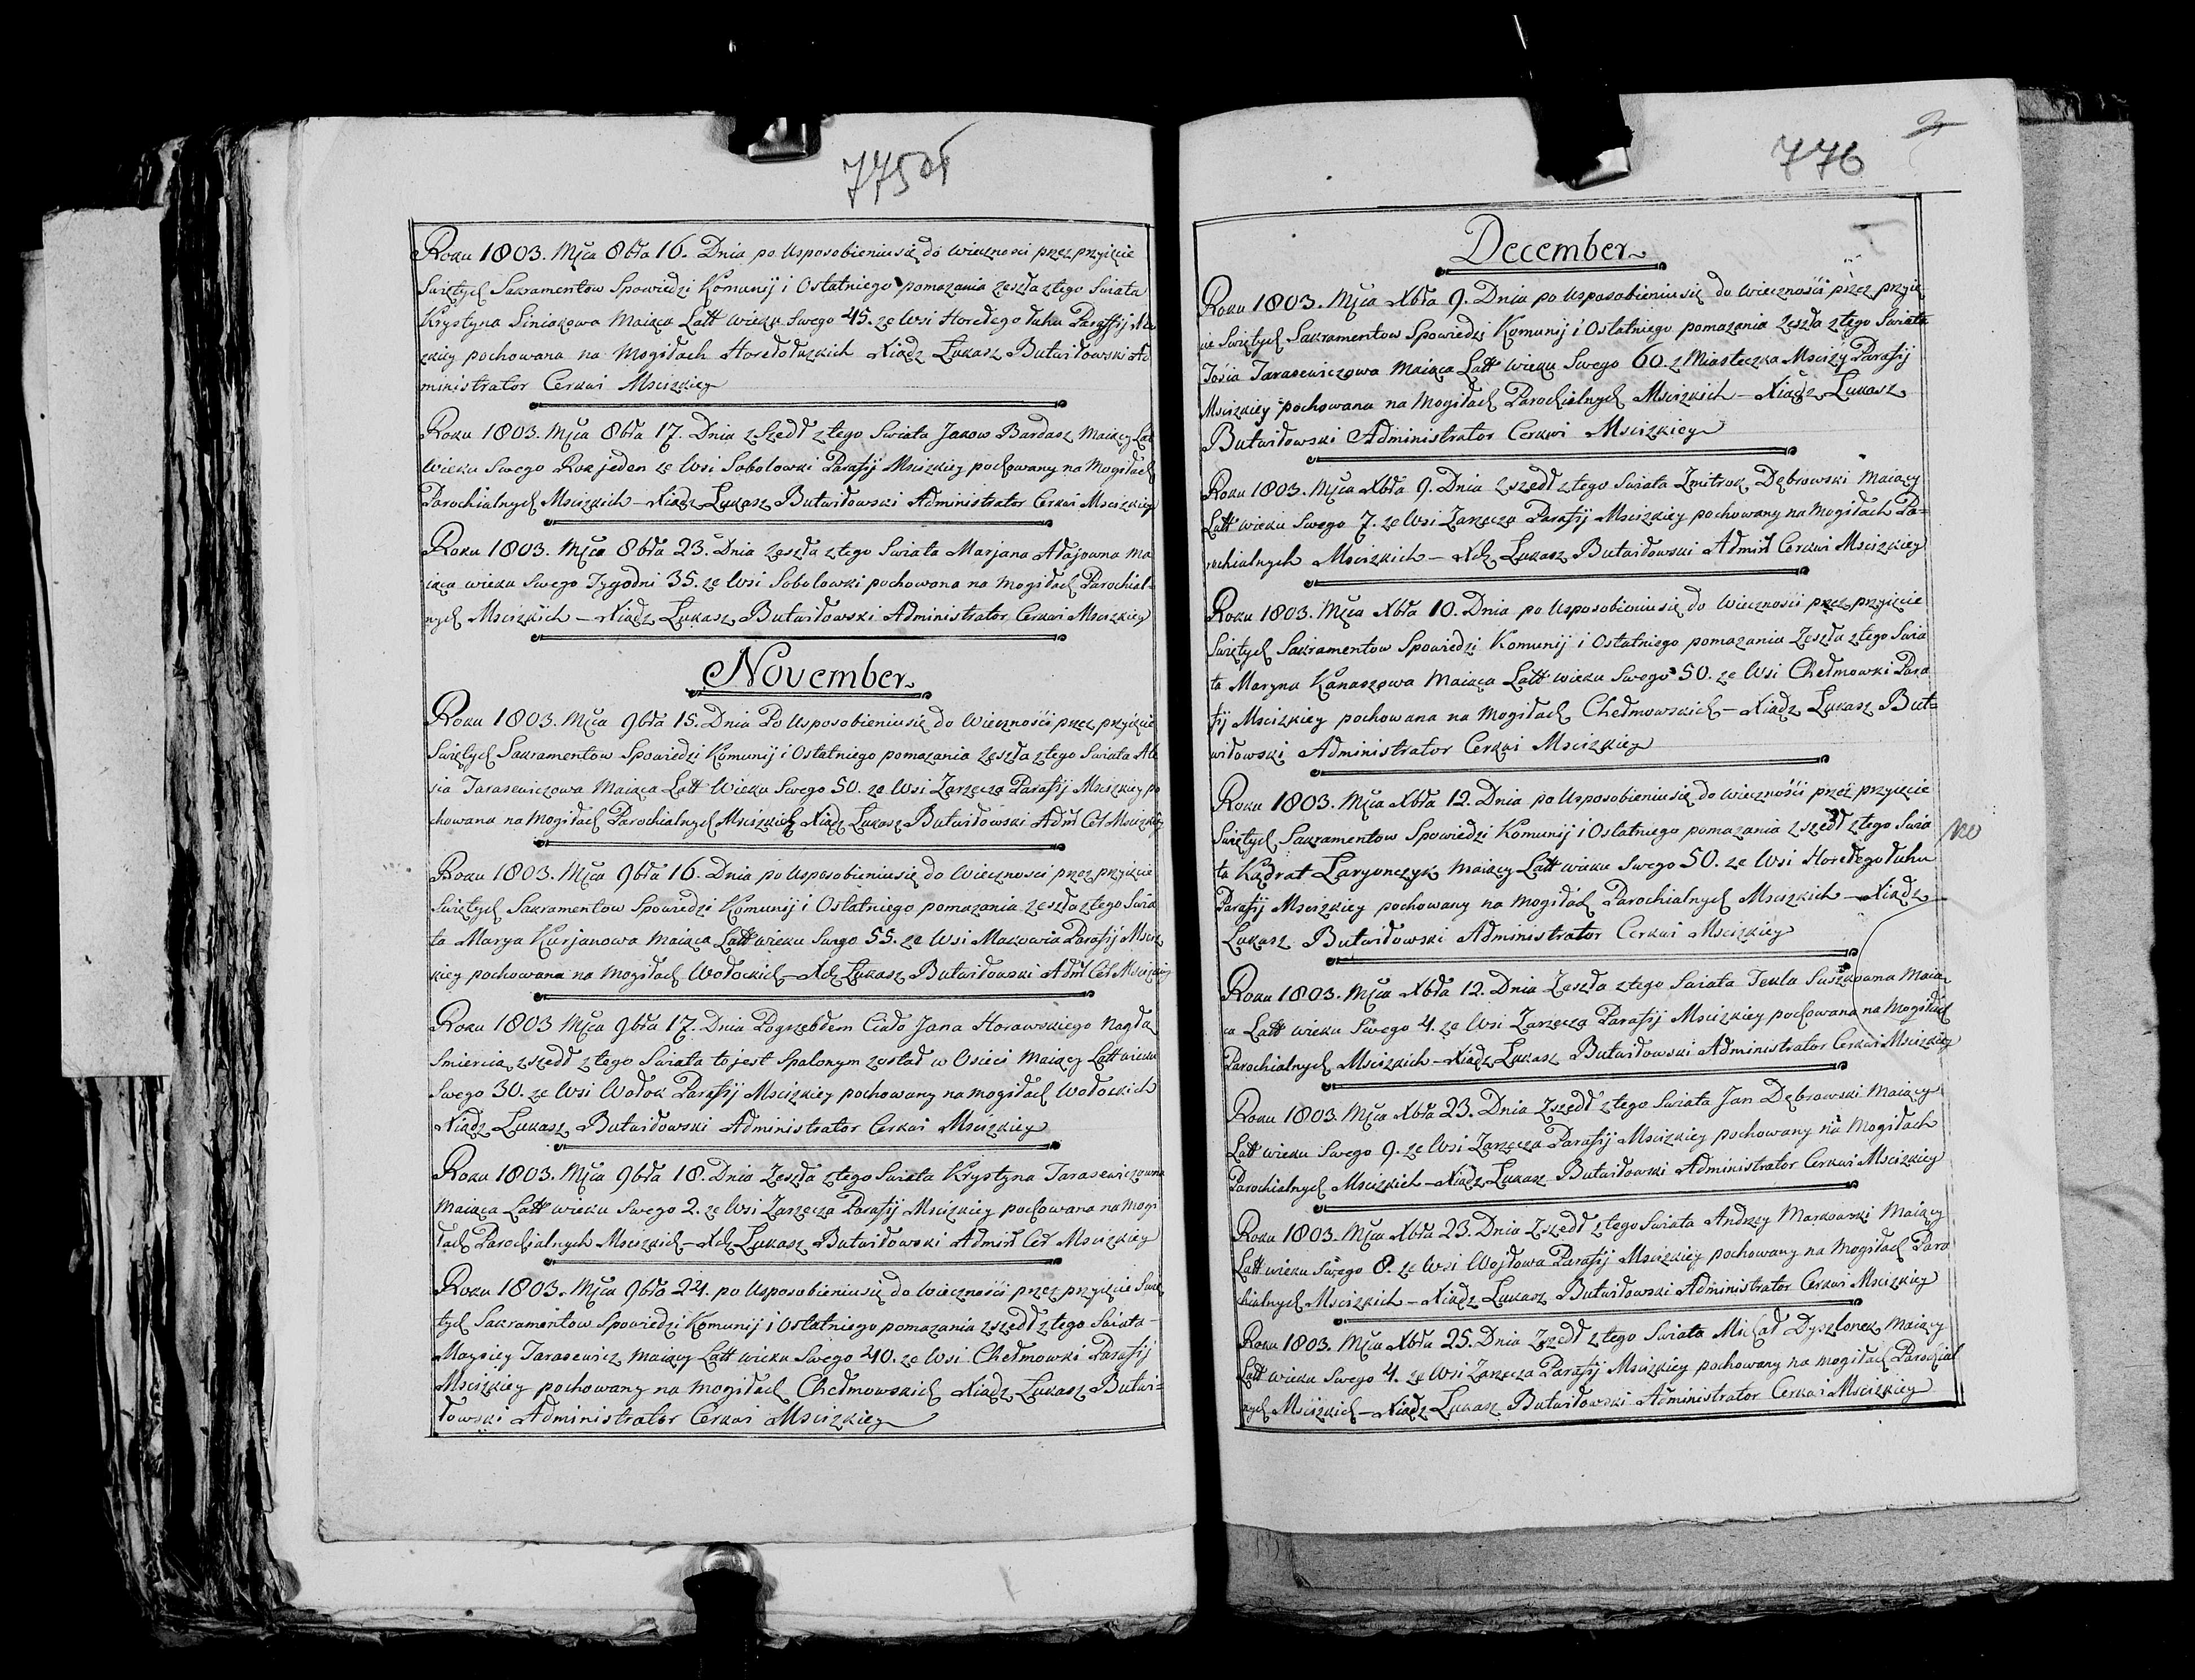 775об
Roku 1803. Mca 8bra 16. Dnia po Usposobieniu się do wiecznosci przez przyięcie
Swiętych Sakramentow Spowiedzi Komunij i Ostatniego pomazania zeszła z tego Swiata
Krystyna Siniakowa Maiąca Latt wieku Swego 45. ze Wsi Horełego Łuhu Paraffij
zkiey pochowana na Mogiłach Horełołuzkich Xiądz Łukasz Butwiłowski Ad
ministrator Cerkwi Mscizkiey
Roku 1803. Mca 8bra 17. Dnia zszedł z tego Swiata Jakow Bardasz Maiący Lat
Wieku Swego Rok jeden ze Wsi Sobolowki Parafij Mscizkiey pochowany na Mogiłach
Parochialnych Mscizkich – Xiądz Łukasz Butwiłowski Administrator Cerkwi Mscizkiey
Roku 1803. Mca 8bra 23. Dnia Zeszła z tego Swiata Marjana Ma
iąca wieku Swego Tygodni 35. ze Wsi Sobolowki pochowana na Mogiłach Parochial-
nych Mscizkich – Xiądz Łukasz Butwiłowski Administrator Cerkwi Mscizkiey
November
Roku 1803. Mca 9bra 15. Dnia Po Usposobieniu się do Wieczności przez przyięcie
Swiętych Sakramentow Spowiedzi Komunij i Ostatniego pomazania Zeszła z tego Swiata
Tarasewiczowa Maiąca Latt Wieku Swego 50. ze Wsi Zarzecza Parafij Mscizkiey po
chowana na Mogiłach Parochialnych Mscizkich Xiądz Łukasz Butwiłowski Admł Ceł Mscizkiey
Roku 1803. Mca 9bra 16. Dnia po Usposobieniu się do Wiecznosci przez przyięcie
Swiętych Sakramentow Spowiedzi Komunij i Ostatniego pomazania Zeszła z tego Swia
ta Marya Kurjanowa Maiąca Latt wieku Swego 55. ze Wsi Makowia Parafij Msciz
kiey pochowana na Mogiłach Wołockich – Xdz Łukasz Butwiłowski Admł Ceł Mscizkiey
Roku 1803 Mca 9bra 17. Dnia Pogrzebłem Ciało Jana Horawskiego Nagłą
Smiercią zszedł z tego Swiata to jest Spalonym został w Osieci Maiący Latt wieku
Swego 30. ze Wsi Wołok Parafij Mscizkiey pochowany na mogiłach Wołockich
Xiądz Łukasz Butwiłowski Administrator Cerkwi Mscizkiey
Roku 1803. Mca 9bra 18. Dnia Zeszła z tego Swiata Krystyna Tarasewiczowna
Maiąca Latt wieku Swego 2. ze Wsi Zarzecza Parafij Mscizkiey pochowana na Mogi
łach Parochialnych Mscizkich – Xdz Łukasz Butwiłowski Admił Ceł Mscizkiey
Roku 1803. Mca 9bra 24. po Usposobieniu się do Wiecznośći przez przyięcie Swię
tych Sakramentow Spowiedzi Komunij i Ostatniego pomazania zszedł z tego Swiata –
Moysiey Tarasewicz maiący Latt wieku Swego 40. ze Wsi Chełmowki Parafij
Mscizkiey pochowany na Mogiłach Chełmowskich Xiądz Łukasz Butwi-
łowski Administrator Cerkwi Mscizkiey
776
December
Roku 1803. Mca Xbra 9. Dnia po Usposobieniu się do Wiecznośći przez przyię
cie Swiętych Sakramentow Spowiedzi Komunij i Ostatniego pomazania Zeszła z tego Swiata
Tarasewiczowa Maiąca Latt wieku Swego 60. z Miasteczka Mscizy Parafij
Mscizkiey pochowana na Mogiłach Parochialnych Mscizkich – Xiądz Łukasz
Butwiłowski Administrator Cerkwi Mscizkiey
Roku 1803. Mca Xbra 9. Dnia zszedł z tego Swiata Zmitrok Dębrowski Maiący
Latt wieku Swego 7. ze Wsi Zarzecza Parafij Mscizkiey pochowany na Mogiłach Pa-
rochialnych Mscizkich – Xdz Łukasz Butwiłowski Admił Cerkwi Mscizkiey
Roku 1803. Mca Xbra 10. Dnia po Usposobieniu się do Wiecznośći przez przyięcie
Swiętych Sakramentow Spowiedzi Komunij i Ostatniego pomazania Zeszła z tego Swia
ta Maryna Kanaszowa Maiąca Latt wieku Swego 50. ze Wsi Chełmowki Para
fij Mscizkiey pochowana na Mogiłach Chełmowskich – Xiądz Łukasz But-
wiłowski Administrator Cerkwi Mscizkiey
Roku 1803. Mca Xbra 12. Dnia po Usposobieniu się do Wiecznośći przez przyięcie
Swiętych Sakramentow Spowiedzi Komunij i Ostatniego pomazania zszedł z tego Swia
ta Kądrat Laryonczyk Maiący Latt wieku Swego 50. ze Wsi Horełego Łuhu
Parafij Mscizkiey pochowany na Mogiłach Parochialnych Mscizkich – Xiądz
Łukasz Butwiłowski Administrator Cerkwi Mscizkiey
Roku 1803. Mca Xbra 12. Dnia Zeszła z tego Swiata Tekla Suszkowna Maią
ca Latt wieku Swego 4. ze Wsi Zarzecza Parafij Mscizkiey pochowana na Mogiłach
Parochialnych Mscizkich – Xiądz Łukasz Butwiłowski Administrator Cerkwi Mscizkiey
Roku 1803. Mca Xbra 23. Dnia Zszedł z tego Swiata Jan Dębrowski Maiący
Latt wieku Swego 9. ze Wsi Zarzecza Parafij Mscizkiey pochowany na Mogiłach
Parochialnych Mscizkich – Xiądz Łukasz Butwiłowski Administrator Cerkwi Mscizkiey
Roku 1803. Mca Xbra 23. Dnia Zszedł z tego Swiata Andrzey Markowski Maiący
Latt wieku Swego 8. ze Wsi Wojłowa Parafij Mscizkiey pochowany na Mogiłach Paro
chialnych Mscizkich – Xiądz Łukasz Butwiłowski Administrator Cerkwi Mscizkiey
Roku 1803. Mca Xbra 25. Dnia Zszedł z tego Swiata Michał Dyszlonek Maiący
Latt wieku Swego 4. ze Wsi Zarzecza Parafij Mscizkiey pochowany na mogiłach Parochial
nych Mscizkich – Xiądz Łukasz Butwiłowski Administrator Cerkwi Mscizkiey